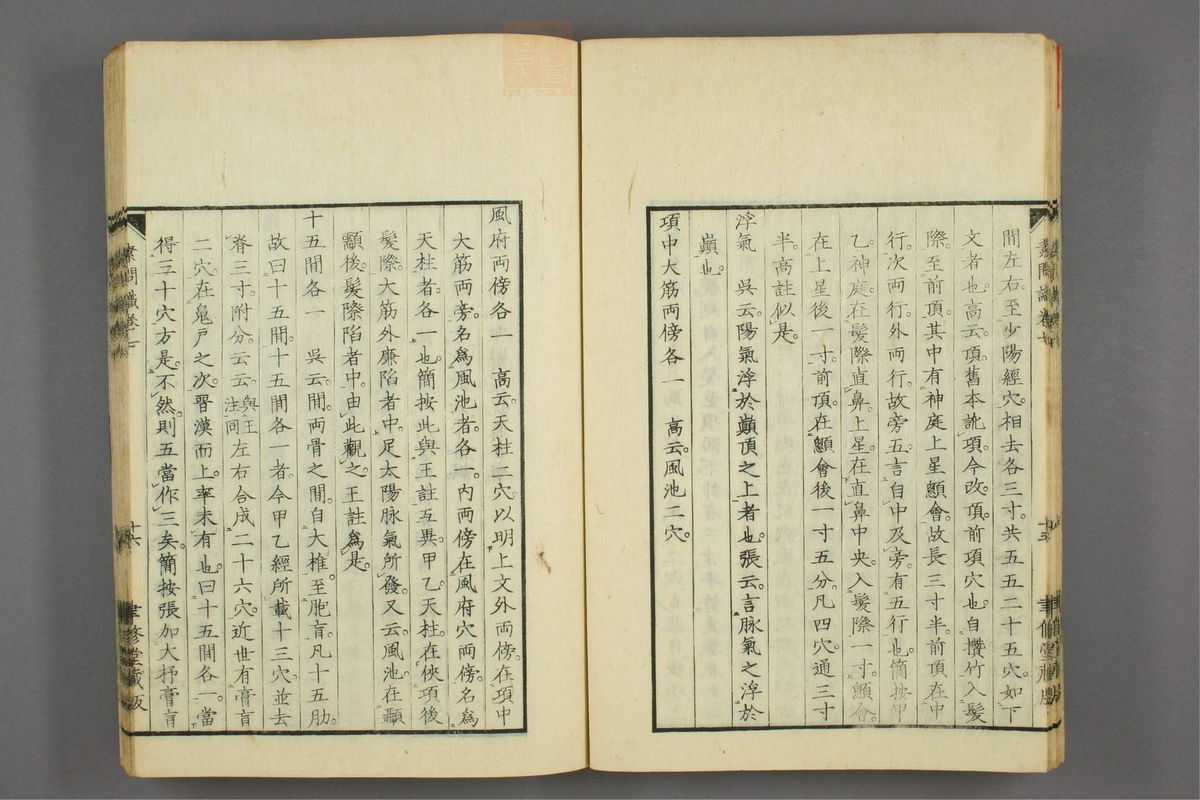 間左右至少陽經穴相去各三寸共五五二十五穴如下
文者也高云頂舊本訛項今改頂前項穴也自攢竹入髮
際至前頂其中有神庭上星顖會故長三寸半前頂在中
行次兩行外兩行故旁五言自中及旁有五行也簡按甲
乙神庭在髮際直鼻上星在直鼻中央入髮際一寸顖會
在上星後一寸前頂在顖會後一寸五分凡四穴通三寸
半高註似是
浮氣 吳云陽氣浮於巔頂之上者也張云言脉氣之浮於
巔也
項中大筋兩傍各一 高云風池二穴
風府兩傍各一 高云天柱二穴以明上文外兩傍在項中
大筋兩旁名爲風池者各一內兩傍在風府穴兩傍名爲
天柱者各一也簡按此與王註互異甲乙天柱在俠項後
髮際大筋外廉陷者中足太陽脉氣所發又云風池在顳
顬後髮際陷者中由此觀之王註爲是
十五間各一 吳云間兩骨之間自大椎至胞肓凡十五肋
故曰十五間十五間各一者今甲乙經所載十三穴並去
脊三寸附分云云與王注同左右合成二十六穴近世有膏肓
二穴在鬼戸之次晋漢而上率未有也曰十五間各一當
得三十穴方是不然則五當作三矣簡按張加大杼膏肓
素問識卷
十六
聿修堂藏版